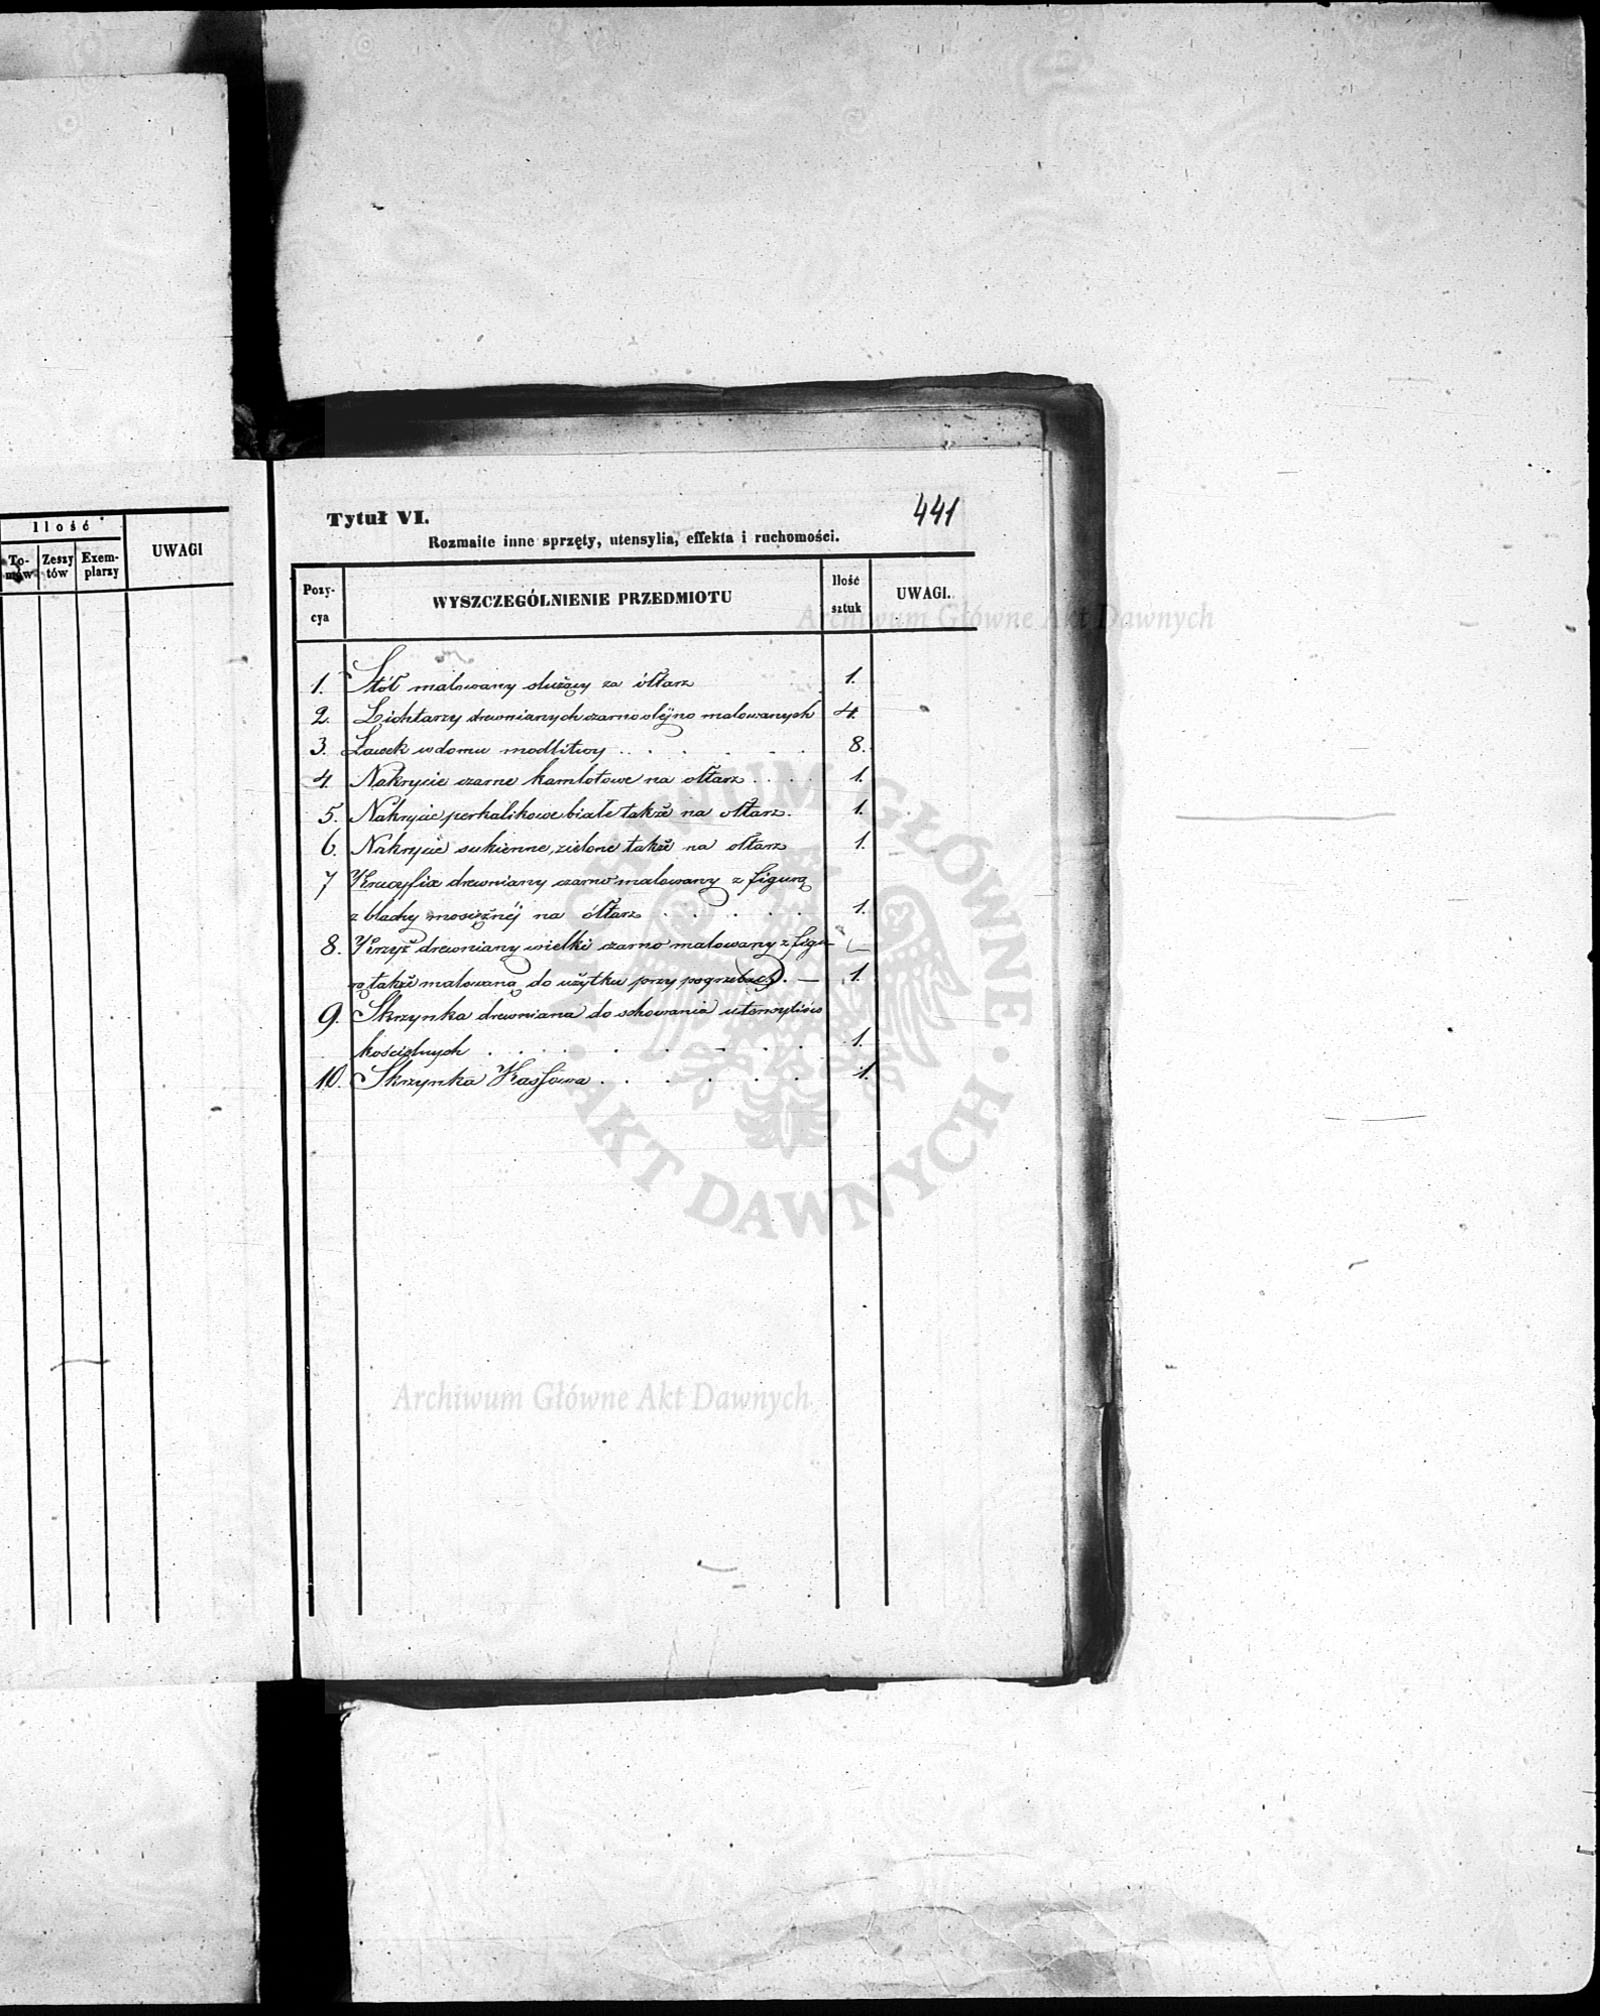 Ilość
To-
mów
Zeszy
tów
Exem-
plarzy
UWAGI
441
Tytuł VI.
Rozmaite inne sprzęty, utensylia, effekta i ruchomości.
Pozy-
cya
WYSZCZEGÓLNIENIE PRZEDMIOTU
Ilość
sztuk
UWAGI.
1. Stół malowany służący za ółtarz 1.
2. Lichtarzy drewnianych czarno olejno malowanych 4.
3. Ławek w domu modlitwy . . . . . . 8.
4. Nakrycie czarne kamlotowe na ołtarz . . . . 1.
5. Nakrycie perkalikowe białe także na ołtarz. 1.
6. Nakrycie sukienne, zielone także na ołtarz 1.
7 Krucyfix drewniany czarno malowany z figurą
z blachy mosiężnéj na ółtarz . . . . . 1.
8. Krzyż drewniany wielki czarno malowany z figu-
rą także malowaną do użytku przy pogrzebach. — 1.
9. Skrzynka drewniana do schowania utensyliów
kościelnych . . . . . . . . 1.
10. Skrzynka Kassowa . . . . . . 1.
Archiwum Główne Akt Dawnych
ARCHIWUM GŁÓWNE · AKT DAWNYCH ·
Archiwum Główne Akt Dawnych